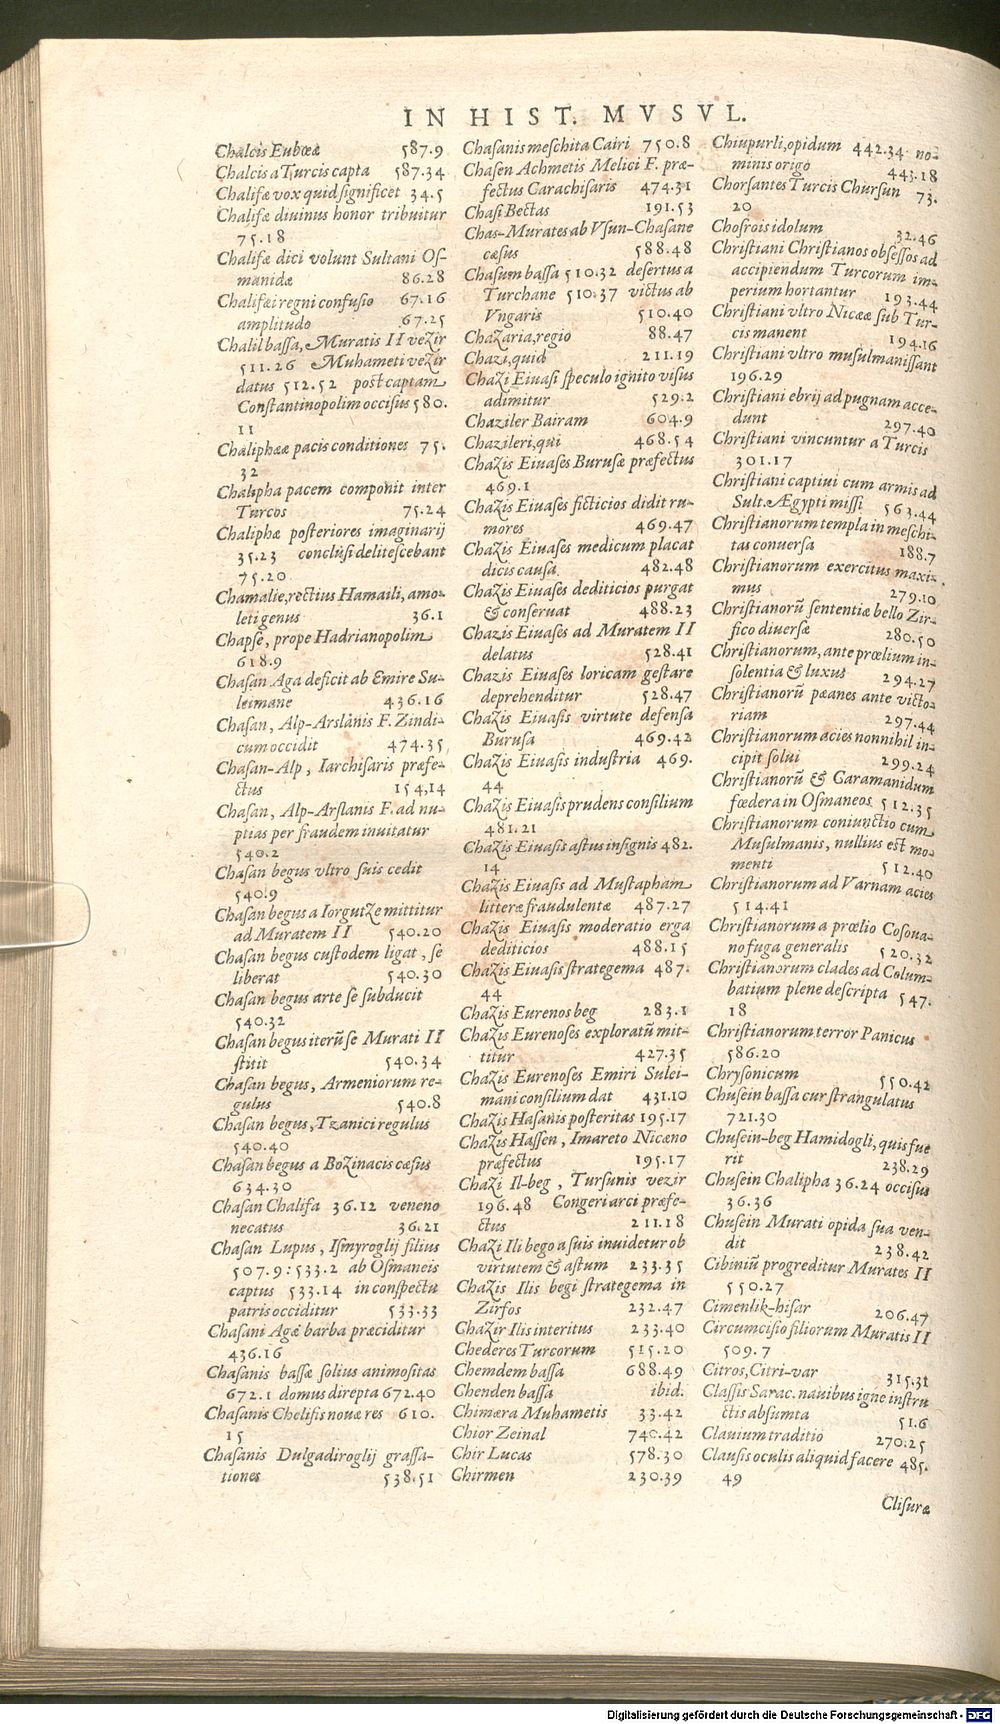 IN HIST. MVSVL.
Chalcis Eubœæ 587.9
Chalcis a Turcis capta 587.34
Chalifæ vox quid significet 34.5
Chalifæ diuinus honor tribuitur
75.18
Chalifæ dici volunt Sultani Os-
manidæ 86.28
Chalifæi regni confusio 67.16
amplitudo 67.25
Chalil bassa, Muratis II vezir
511.26 Muhameti vezir
datus 512.52 post captam
Constantinopolim occisus 580.
11
Chaliphææ pacis conditiones 75.
32
Chalipha pacem componit inter
Turcos 75.24
Chaliphæ posteriores imaginarij
35.23 conclusi delitescebant
75.20
Chamalie, rectius Hamaili, amo-
leti genus 36.1
Chapse, prope Hadrianopolim
618.9
Chasan Aga deficit ab Emire Su-
leimane 436.16
Chasan, Alp-Arslanis F. Zindi-
cum occidit 474.35
Chasan-Alp, Iarchisaris præfe-
ctus 154,14
Chasan, Alp-Arslanis F. ad nu-
ptias per fraudem inuitatur
540.2
Chasan begus vltro suis cedit
540.9
Chasan begus a Iorgutze mittitur
ad Muratem II 540.20
Chasan begus custodem ligat, se
liberat 540.30
Chasan begus arte se subducit
540.32
Chasan begus iterũ se Murati II
stitit 540.34
Chasan begus, Armeniorum re-
gulus 540.8
Chasan begus, Tzanici regulus
540.40
Chasan begus a Bozinacis cæsus
634.30
Chasan Chalifa 36.12 veneno
necatus 36.21
Chasan Lupus, Ismyroglij filius
507.9: 533.2 ab Osmaneis
captus 533.14 in conspectu
patris occiditur 533.33
Chasani Agæ barba præciditur
436.16
Chasanis bassæ solius animositas
672.1 domus direpta 672.40
Chasanis Chelifis nouæ res 610.
15
Chasanis Dulgadiroglij grassa-
tiones 538.51
Chasanis meschita Cairi 750.8
Chasen Achmetis Melici F. præ-
fectus Carachisaris 474.31
Chasi Bectas 191.53
Chas-Murates ab Vsun-Chasane
cæsus 588.48
Chasum bassa 510.32 desertus a
Turchane 510.37 victus ab
Vngaris 510.40
Chazaria, regio 88.47
Chazi, quid 211.19
Chazi Eiuasi speculo ignito visus
adimitur 529.2
Chaziler Bairam 604.9
Chazileri, qui 468.54
Chazis Eiuases Burusæ præfectus
469.1
Chazis Eiuases ficticios didit ru-
mores 469.47
Chazis Eiuases medicum placat
dicis causa 482.48
Chazis Eiuases dediticios purgat
& conseruat 488.23
Chazis Eiuases ad Muratem II
delatus 528.41
Chazis Eiuases loricam gestare
deprehenditur 528.47
Chazis Eiuasis virtute defensa
Burusa 469.42
Chazis Eiuasis industria 469.
44
Chazis Eiuasis prudens consilium
481.21
Chazis Eiuasis astus insignis 482.
14
Chazis Eiuasis ad Mustapham
litteræ fraudulentæ 487.27
Chazis Eiuasis moderatio erga
dediticios 488.15
Chazis Eiuasis strategema 487.
44
Chazis Eurenos beg 283.1
Chazis Eurenoses exploratũ mit-
titur 427.35
Chazis Eurenoses Emiri Sulei-
mani consilium dat 431.10
Chazis Hasanis posteritas 195.17
Chazis Hassen, Imareto Nicæno
præfectus 195.17
Chazi Il-beg, Tursunis vezir
196.48 Congeri arci præfe-
ctus 211.18
Chazi Ili bego a suis inuidetur ob
virtutem & astum 233.35
Chazis Ilis begi strategema in
Zirfos 232.47
Chazir Ilis interitus 233.40
Chederes Turcorum 515.20
Chemdem bassa 688.49
Chenden bassa ibid.
Chimæra Muhametis 33.42
Chior Zeinal 740.42
Chir Lucas 578.30
Chirmen 230.39
Chiupurli, opidum 442.34 no-
minis origo 443.18
Chorsantes Turcis Chursun 73.
20
Chosrois idolum 32.46
Christiani Christianos obsessos ad
accipiendum Turcorum im-
perium hortantur 193.44
Christiani vltro Nicææ sub Tur-
cis manent 194.16
Christiani vltro musulmanissant
196.29
Christiani ebrij ad pugnam acce-
dunt 297.40
Christiani vincuntur a Turcis
301.17
Christiani captiui cum armis ad
Sult. Ægypti missi 563.44
Christianorum templa in meschi-
tas conuersa 188.7
Christianorum exercitus maxi-
mus 279.10
Christianorũ sententiæ bello Zir-
fico diuersæ 280.50
Christianorum, ante prœlium in-
solentia & luxus 294.27
Christianorũ pæanes ante victo-
riam 297.44
Christianorum acies nonnihil in-
cipit solui 299.24
Christianorũ & Caramanidum
fœdera in Osmaneos 512.35
Christianorum coniunctio cum
Musulmanis, nullius est mo-
menti 512.40
Christianorum ad Varnam acies
514.41
Christianorum a prœlio Cosoua-
no fuga generalis 520.32
Christianorum clades ad Colum-
batium plene descripta 547.
18
Christianorum terror Panicus
586.20
Chrysonicum 550.42
Chusein bassa cur strangulatus
721.30
Chusein-beg Hamidogli, quis fue
rit 238.29
Chusein Chalipha 36.24 occisus
36.36
Chusein Murati opida sua ven-
dit 238.42
Cibiniũ progreditur Murates II
550.27
Cimenlik-hisar 206.47
Circumcisio filiorum Muratis II
509.7
Citros, Citri-var 315.31
Classis Sarac. nauibus igne instru
ctis absumta 51.6
Clauium traditio 270.25
Clausis oculis aliquid facere 485.
49
Clisuræ
Digitalisierung gefördert durch die Deutsche Forschungsgemeinschaft - DFG